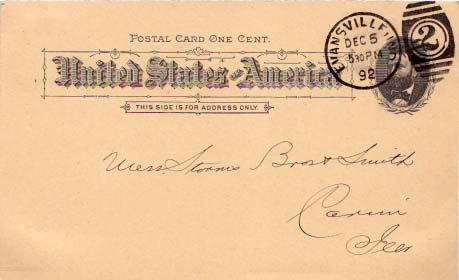 POSTAL CARD ONE CENT.
United States of America
THIS SIDE IS FOR ADDRESS ONLY.
EVANSVILLE, IND.
DEC 5
530 PM
92
2
Mess. Storms Bros & Smith
Carmi
Ills